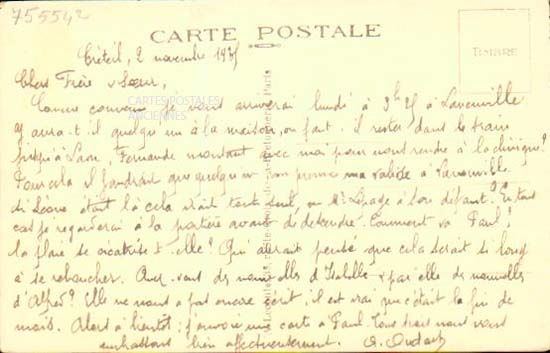 755542
CARTE POSTALE
TIMBRE
Créteil, 2 novembre
Chers Frère & Sœur,
Comme convenu je vous arriverai lundi à 3h 25 à
CARTES POSTALES ANCIENNES
y aura-t-il quelqu'un à la maison, ou faut-il rester dans le train
jusqu'à Laon, Fernande montant avec moi pour nous rendre à la clinique?
Pour cela il faudrait que quelqu'un vienne prendre ma valise à
si Léone était là cela irait tout seul, ou Mr Lepage à son défaut. En tout
cas je regarderai à la portière avant de descendre. Comment va Paul?
la plaie se cicatrise-t-elle? Qui aurait pensé que cela serait si long
à se reboucher. Avez-vous des nouvelles d'Isabelle & par elle des nouvelles
d'Alfred? Elle ne nous a pas encore écrit; il est vrai que c'était la fin du
mois. Alors à bientôt; j'envoie une carte à Paul. Tous trois nous vous
embrassons bien affectueusement.